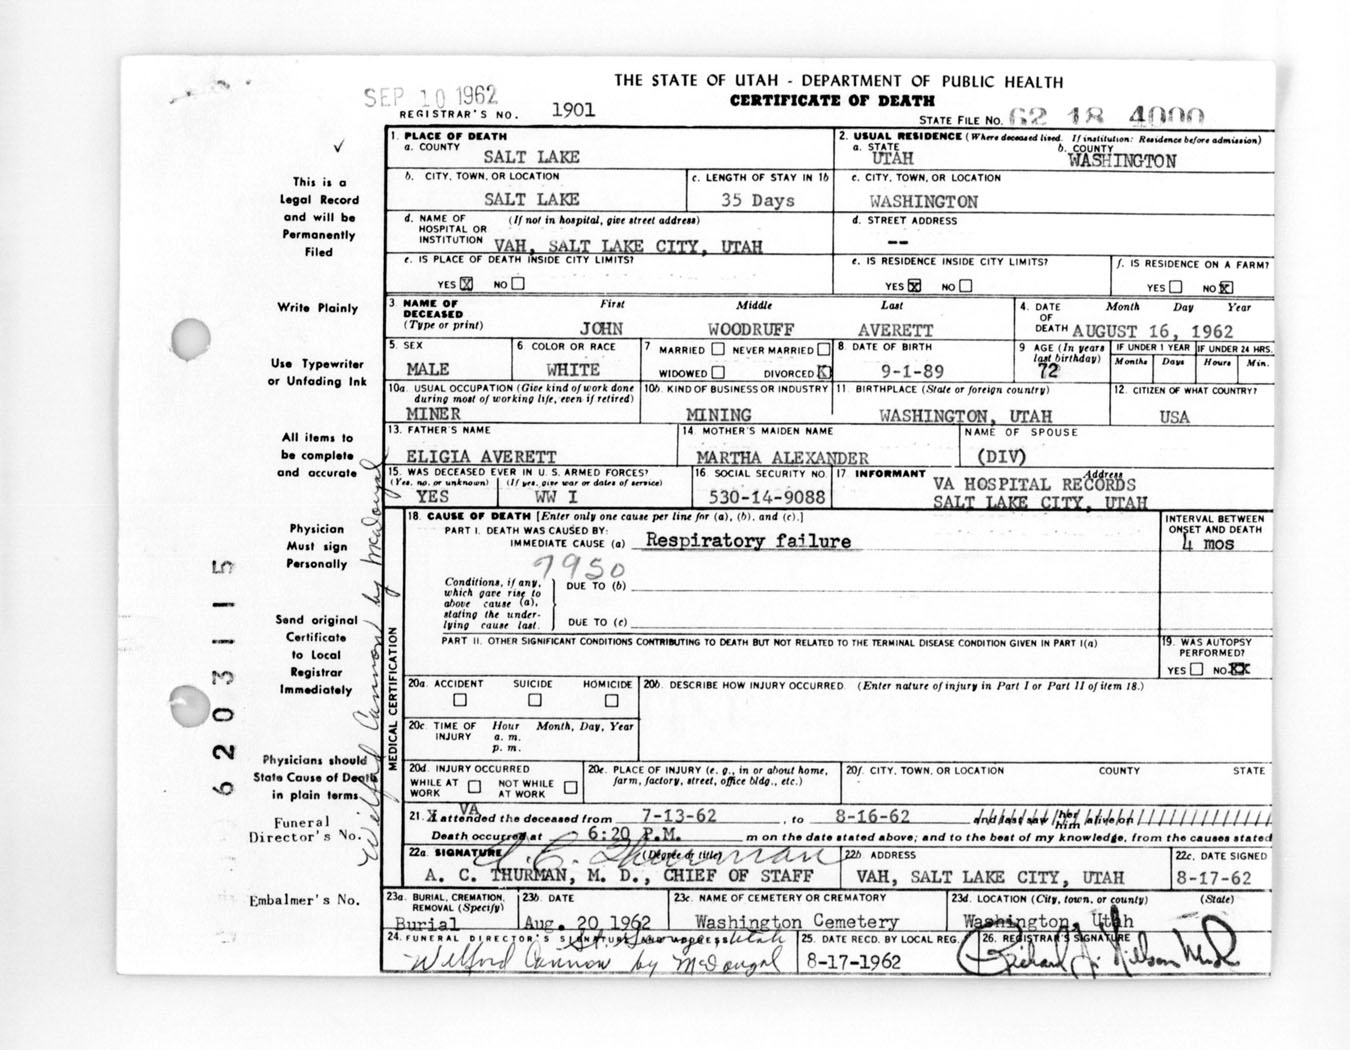 THE STATE OF UTAH - DEPARTMENT OF PUBLIC HEALTH
SEP 10 1962
CERTIFICATE OF DEATH
REGISTRAR'S NO. 1901
STATE FILE NO. 62 18 4000
1. PLACE OF DEATH
a. COUNTY
SALT LAKE
2. USUAL RESIDENCE (Where deceased lived. If institution: Residence before admission)
a. STATE b. COUNTY
UTAH WASHINGTON
b. CITY, TOWN, OR LOCATION
SALT LAKE
c. LENGTH OF STAY IN 1b
35 Days
c. CITY, TOWN, OR LOCATION
WASHINGTON
d. NAME OF HOSPITAL OR INSTITUTION (If not in hospital, give street address)
VAH, SALT LAKE CITY, UTAH
d. STREET ADDRESS
--
e. IS PLACE OF DEATH INSIDE CITY LIMITS?
YES X NO
e. IS RESIDENCE INSIDE CITY LIMITS?
YES X NO
f. IS RESIDENCE ON A FARM?
YES NO X
3. NAME OF DECEASED (Type or print)
First Middle Last
JOHN WOODRUFF AVERETT
4. DATE OF DEATH Month Day Year
AUGUST 16, 1962
5. SEX
MALE
6. COLOR OR RACE
WHITE
7 MARRIED NEVER MARRIED
WIDOWED DIVORCED X
8. DATE OF BIRTH
9-1-89
9 AGE (In years last birthday)
72
IF UNDER 1 YEAR IF UNDER 24 HRS.
Months Days Hours Min.
10a. USUAL OCCUPATION (Give kind of work done during most of working life, even if retired)
MINER
10b. KIND OF BUSINESS OR INDUSTRY
MINING
11. BIRTHPLACE (State or foreign country)
WASHINGTON, UTAH
12. CITIZEN OF WHAT COUNTRY?
USA
13. FATHER'S NAME
ELIGIA AVERETT
14. MOTHER'S MAIDEN NAME
MARTHA ALEXANDER
NAME OF SPOUSE
(DIV)
15. WAS DECEASED EVER IN U. S. ARMED FORCES?
(Yes, no, or unknown) (If yes, give war or dates of service)
YES WW I
16. SOCIAL SECURITY NO.
530-14-9088
17. INFORMANT Address
VA HOSPITAL RECORDS
SALT LAKE CITY, UTAH
18. CAUSE OF DEATH [Enter only one cause per line for (a), (b), and (c).]
PART I. DEATH WAS CAUSED BY:
IMMEDIATE CAUSE (a) Respiratory failure
INTERVAL BETWEEN ONSET AND DEATH
4 mos
7950
Conditions, if any, which gave rise to above cause (a), stating the underlying cause last.
DUE TO (b)
DUE TO (c)
PART II. OTHER SIGNIFICANT CONDITIONS CONTRIBUTING TO DEATH BUT NOT RELATED TO THE TERMINAL DISEASE CONDITION GIVEN IN PART I(a)
19. WAS AUTOPSY PERFORMED?
YES NO XX
MEDICAL CERTIFICATION
20a. ACCIDENT SUICIDE HOMICIDE
20b. DESCRIBE HOW INJURY OCCURRED. (Enter nature of injury in Part I or Part II of item 18.)
20c. TIME OF INJURY Hour Month, Day, Year
a. m.
p. m.
20d. INJURY OCCURRED
WHILE AT WORK NOT WHILE AT WORK
20e. PLACE OF INJURY (e. g., in or about home, farm, factory, street, office bldg., etc.)
20f. CITY, TOWN, OR LOCATION COUNTY STATE
21. X VA attended the deceased from 7-13-62, to 8-16-62 and last saw her him alive on //////////////
Death occurred at 6:20 P.M. m on the date stated above; and to the best of my knowledge, from the causes stated
22a. SIGNATURE (Degree or title)
A. C. Thurman
A. C. THURMAN, M. D., CHIEF OF STAFF
22b. ADDRESS
VAH, SALT LAKE CITY, UTAH
22c. DATE SIGNED
8-17-62
23a. BURIAL, CREMATION, REMOVAL (Specify)
Burial
23b. DATE
Aug. 20, 1962
23c. NAME OF CEMETERY OR CREMATORY
Washington Cemetery
23d. LOCATION (City, town, or county) (State)
Washington, Utah
24. FUNERAL DIRECTOR'S SIGNATURE AND ADDRESS
Utah
Wilford Cannon by McDougal
25. DATE RECD. BY LOCAL REG.
8-17-1962
26. REGISTRAR'S SIGNATURE
This is a
Legal Record
and will be
Permanently
Filed
Write Plainly
Use Typewriter
or Unfading Ink
All items to
be complete
and accurate
Physician
Must sign
Personally
Send original
Certificate
to Local
Registrar
Immediately
Physicians should
State Cause of Death
in plain terms
Funeral
Director's No.
Embalmer's No.
Wilford Cannon by McDougal
6203115